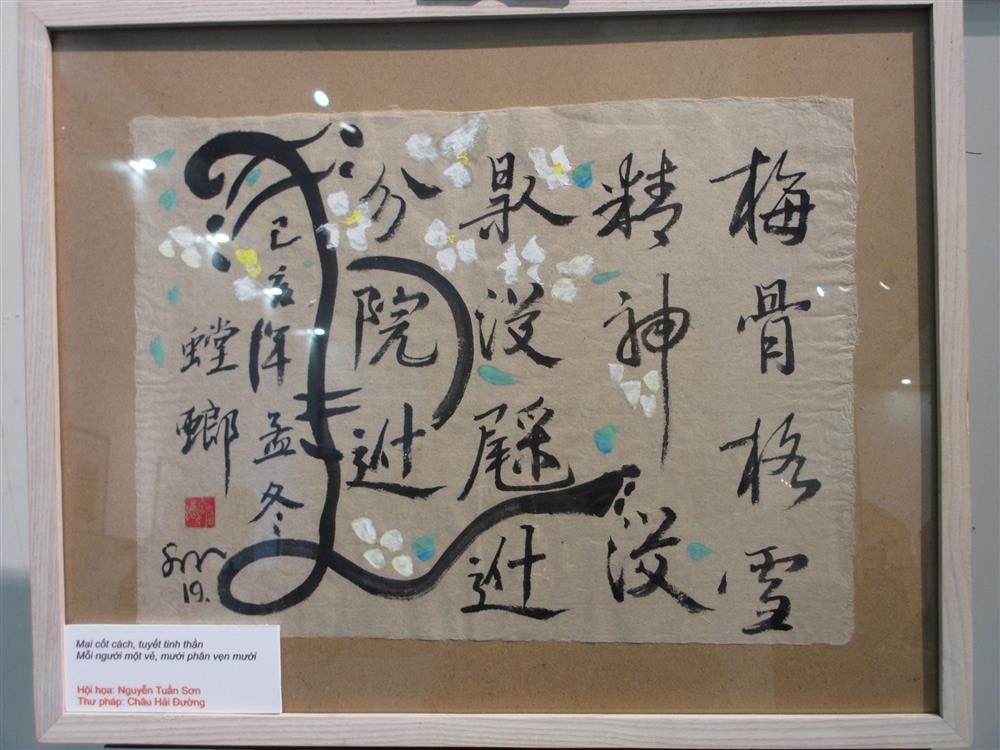 梅骨格雪
精神没
没𨤔𨑮
分院𨑮
己亥年孟冬
螳螂
19.
Mai cốt cách, tuyết tinh thần
Mỗi người một vẻ, mười phân vẹn mười
Hội họa: Nguyễn Tuấn Sơn
Thư pháp: Châu Hải Đường